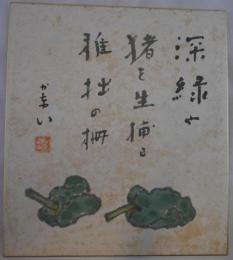 深緑や
猪を生捕る
稚拙の柵
かない